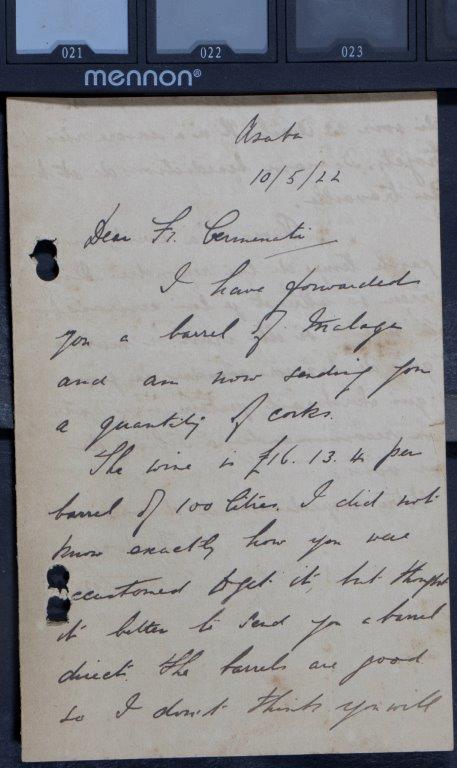 021 022 023
mennon®
Asaba
10/5/22
Dear Fr. Cermenati
I have forwarded
you a barrel of Malaga
and am now sending you
a quantity of corks.
The wine is £16. 13. 4 per
barrel of 100 litres. I did not
know exactly how you were
ccustomed to get it, but thought
it better to send you a barrel
direct. The barrels are good
so I don't think you will